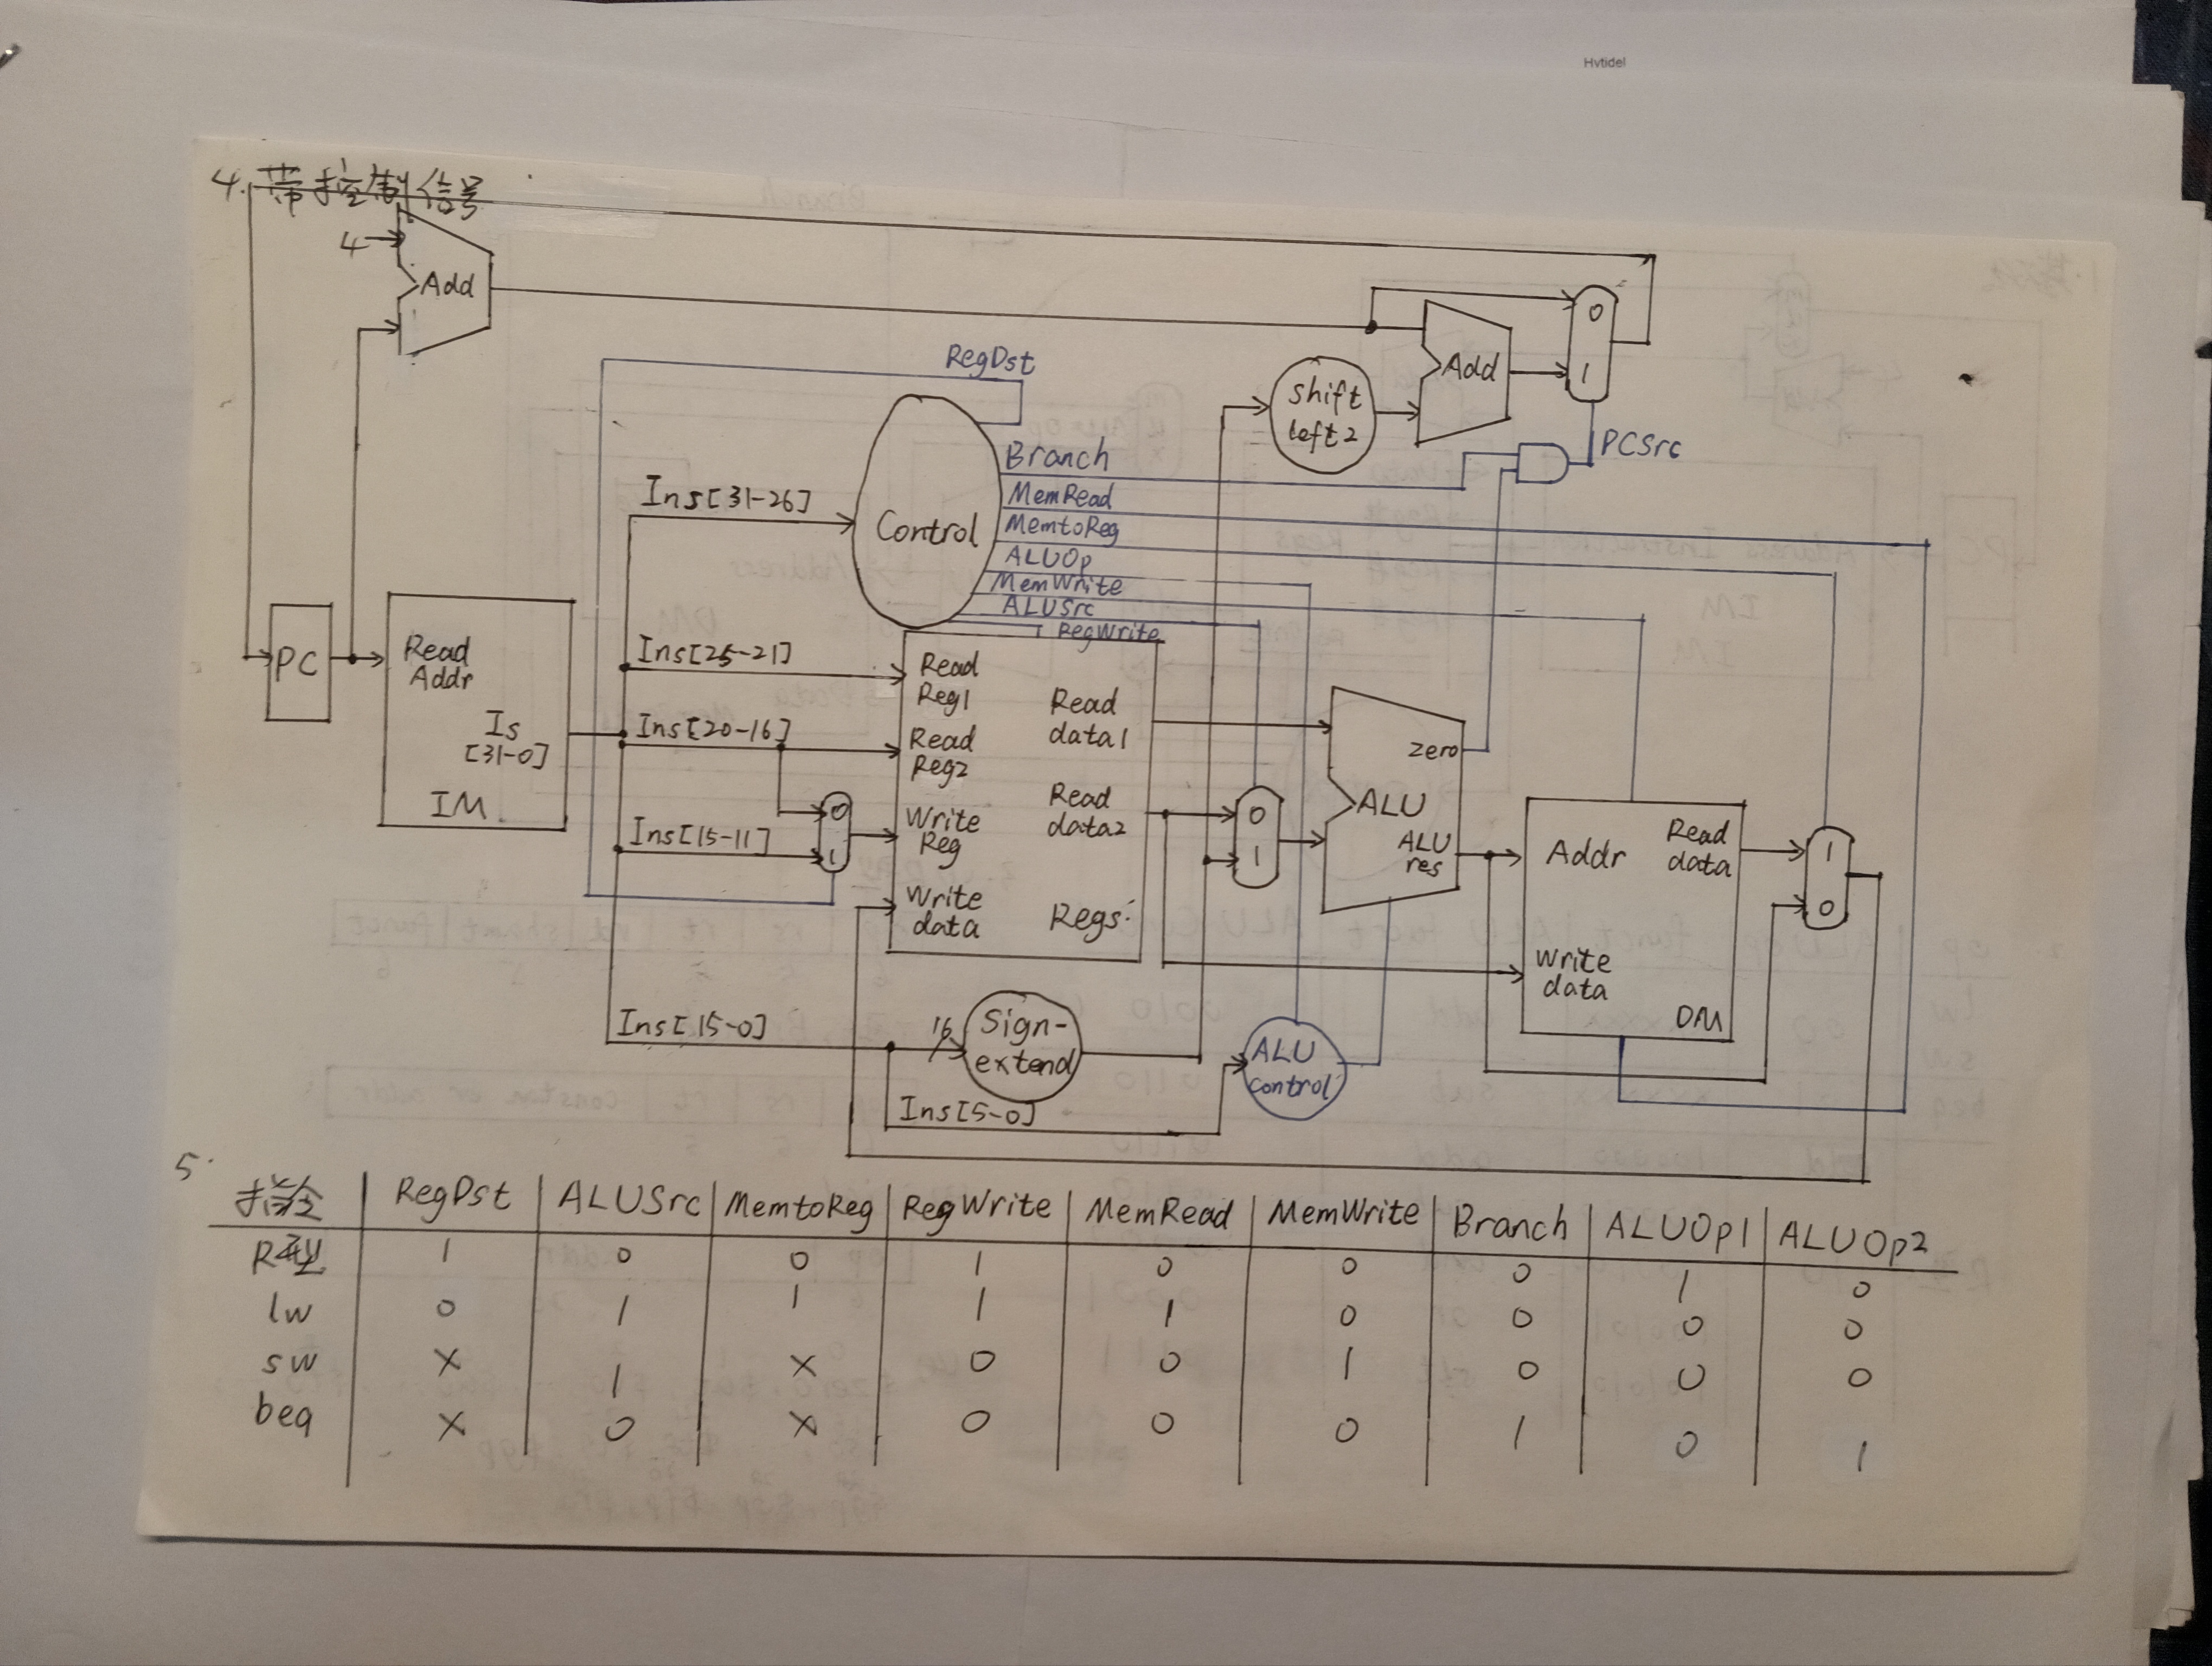 Hvtidel
4. 带控制信号
4
Add
RegDst
Add
0
1
shift
left2
PCSrc
Branch
MemRead
MemtoReg
ALUOp
MemWrite
ALUSrc
RegWrite
Ins[31-26]
Control
PC
Read
Addr
Is
[31-0]
IM
Ins[25-21]
Ins[20-16]
Ins[15-11]
0
1
Read
Reg1
Read
Reg2
Write
Reg
Write
data
Read
data1
Read
data2
Regs
0
1
zero
ALU
ALU
res
Addr
Read
data
Write
data
DM
1
0
Ins[15-0]
16
Sign-
extend
Ins[5-0]
ALU
control
5.
指令 RegDst ALUSrc MemtoReg RegWrite MemRead MemWrite Branch ALUOp1 ALUOp2
R型 1 0 0 1 0 0 0 1 0
lw 0 1 1 1 1 0 0 0 0
sw X 1 X 0 0 1 0 0 0
beq X 0 X 0 0 0 1 0 1